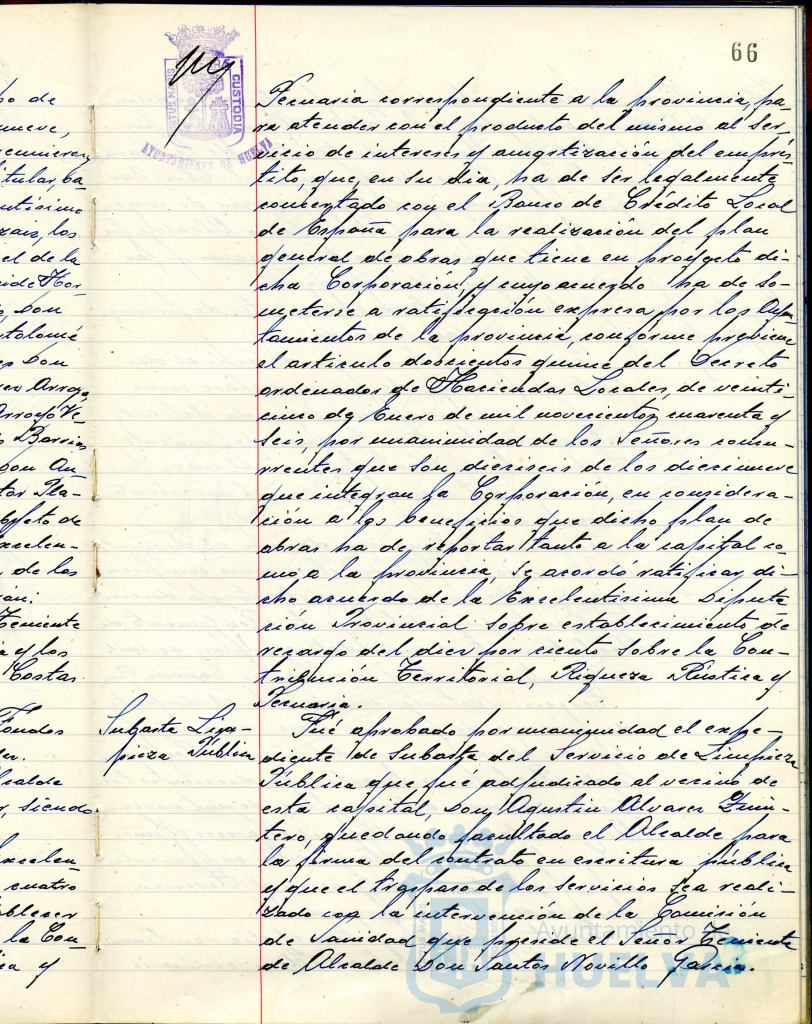 66
CUSTODIA
AYUNTAMIENTO DE HUELVA
Pecuaria correspondiente a la provincia, pa-
ra atender con el producto del mismo al ser-
vicio de intereses y amortización del emprés-
tito, que, en su dia, ha de ser legalmente
concertado con el Banco de Crédito Local
de España para la realización del plan
general de obras que tiene en proyecto di-
cha Corporación, y cuyo acuerdo ha de so-
meterse a ratificación expresa por los Ayun-
tamientos de la provincia, conforme previene
el articulo doscientos quince del Decreto
ordenador de Haciendas Locales, de veinti-
cinco de Enero de mil novecientos cuarenta y
seis, por unanimidad de los Señores concu-
rrentes que son dieciseis de los diecinueve
que integran la Corporación, en considera-
ción a los beneficios que dicho plan de
obras ha de reportar tanto a la capital co-
mo a la provincia, se acordó ratificar di-
cho acuerdo de la Excelentísima Diputa-
ción Provincial sobre establecimiento de
recargo del diez por ciento sobre la Con-
tribución Territorial, Riqueza Rústica y
Pecuaria.
Subasta Lim-
pieza Pública
Fué aprobado por unanimidad el expe-
diente de Subasta del Servicio de Limpieza
Pública que fué adjudicado al vecino de
esta capital, Don Agustin Alvarez Quin-
tero, quedando facultado el Alcalde para
la firma del contrato en escritura pública
y que el traspaso de los servicios sea reali-
zado con la intervención de la Comisión
de Sanidad que preside el Señor Teniente
de Alcalde Don Santos Novillo Garcia.
Ayuntamiento de
HUELVA
po de
nueve,
reunieron
titular, ba-
ntísimo
los
el de la
Don
tolomé
es Don
Arroyo
Arroyo Ve-
Barrios
Don An-
tor Pla-
objeto de
xcelen-
de los
rán:
Teniente
a y los
Costas
Fondos
der.
lcalde
r, siendo
xcelen-
cuatro
ablecer
la Con-
ica y